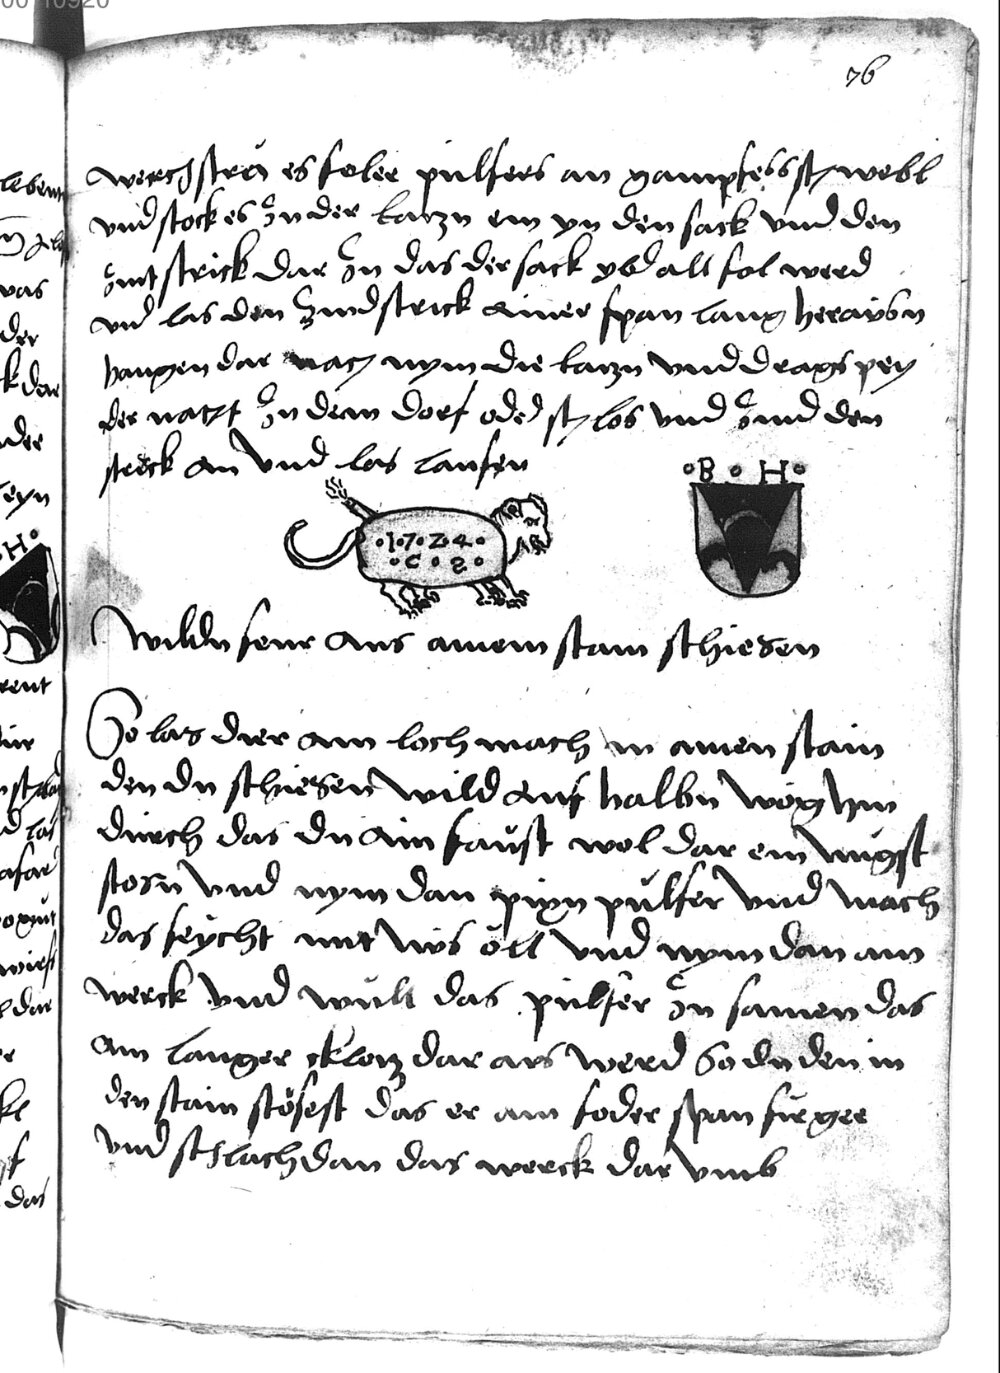 76
werch strei es foler pulfers an gampfes st webl
vnd stock es zu der kaczn ein yn den sack vnd den
zint strick dar zu das der sack yb all fol werd
vnd las den zindstrick ainer span lang heraussn
hangen dar nach nym die kaczn vnd drags pey
der nacht zu dem dorf oder slos vnd zind den
strick an vnd las lauffen
B H
1 7 2 4
C 2
Wildn feur aus ainem stain schiesen
So las dier ain loch mach in ainen stain
den du schiesen wild auf halbn wög hin
durch das du ain faust wol dar ein mugst
stosn vnd nym dan pixn pulfer vnd mach
das feycht mit nus öll vnd nym dan ain
werck vnd wull das pulfer zu samen das
ain langer cklocz dar aus werd so du den in
den stain stösest das er ain foder span fir gee
vnd schlach dan das werck dar vmb